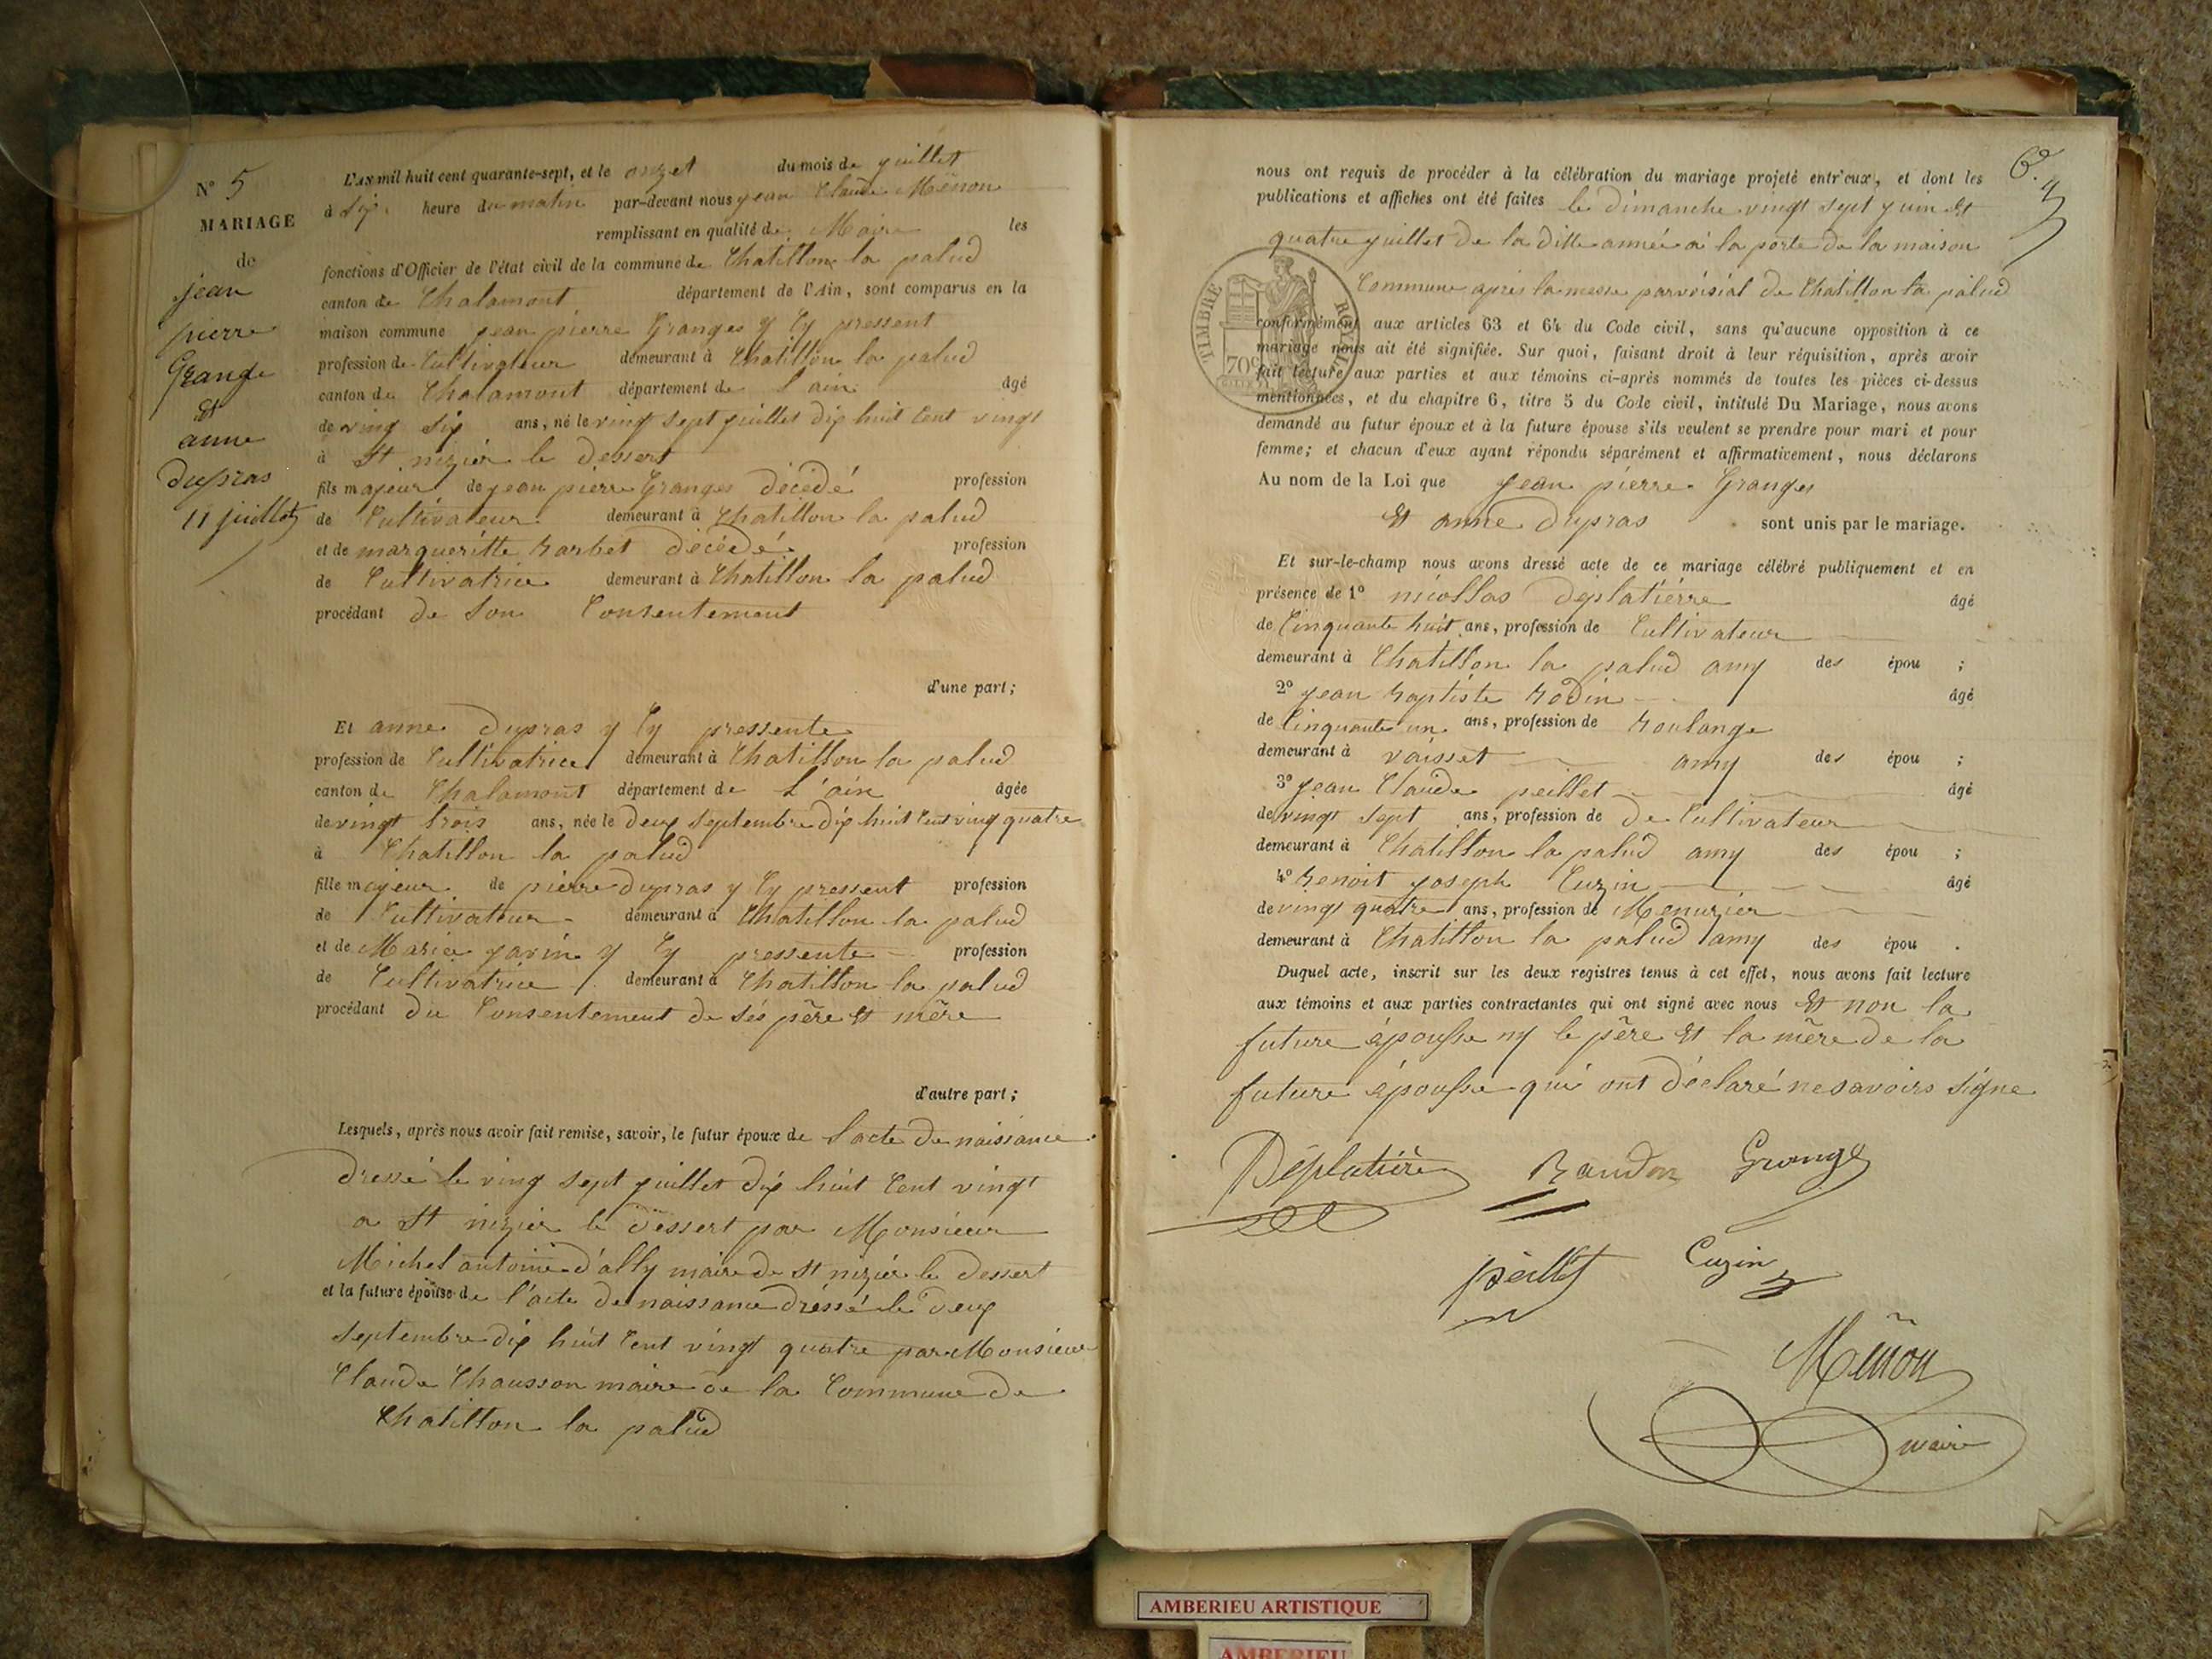 N° 5
MARIAGE
de
jean
pierre
Grange
et
anne
dupras
11 juillet
L'AN mil huit cent quarante-sept, et le onzet du mois de juillet
à six heure du matin par-devant nous jean Claude Menon
remplissant en qualité de Maire les
fonctions d'Officier de l'état civil de la commune de Chatillon la palud
canton de Chalamont département de l'Ain, sont comparus en la
maison commune jean pierre Granges y Cy pressent
profession de Cultivateur demeurant à Chatillon la palud
canton de Chalamont département de l'ain âgé
de ving six ans, né le ving sept juillet dix huit Cent vingt
à St nizier le dessert
fils majeur de jean pierre Granges décédé profession
de Cultivateur demeurant à Chatillon la palud
et de margueritte barbet décédé profession
de Cultivatrice demeurant à Chatillon la palud
procédant de son Consentement
d'une part;
Et anne dupras y Cy pressente
profession de Cultivatrice demeurant à Chatillon la palud
canton de Chalamont département de L'ain âgée
de vingt trois ans, née le deux septembre dix huit Cent ving quatre
à Chatillon la palud
fille majeur de pierre dupras y Cy pressent profession
de Cultivateur demeurant à Chatillon la palud
et de Marie javin y Cy pressente profession
de Cultivatrice demeurant à Chatillon la palud
procédant du Consentement de sés père et mère
d'autre part;
Lesquels, après nous avoir fait remise, savoir, le futur époux de l'acte de naissance
dressé le ving sept juillet dix huit Cent vingt
a St nizier le dessert par Monsieur
Michel antoine d'ally maire de St nizier le dessert
et la future épouse de l'acte de naissance dréssé le deux
septembre dix huit Cent vingt quatre par Monsieur
Claude Chausson maire de la Commune de
Chatillon la palud
nous ont requis de procéder à la célébration du mariage projeté entr'eux, et dont les
publications et affiches ont été faites le dimanche vingt sept juin et
quatre juillet de la ditte année a la porte de la maison
Commune apres la messe parroisial de Chatillon la palud
TIMBRE ROYAL
70c
conformément aux articles 63 et 64 du Code civil, sans qu'aucune opposition à ce
mariage nous ait été signifiée. Sur quoi, faisant droit à leur réquisition, après avoir
fait lecture aux parties et aux témoins ci-après nommés de toutes les pièces ci-dessus
mentionnées, et du chapitre 6, titre 5 du Code civil, intitulé Du Mariage, nous avons
demandé au futur époux et à la future épouse s'ils veulent se prendre pour mari et pour
femme; et chacun d'eux ayant répondu séparément et affirmativement, nous déclarons
Au nom de la Loi que jean pierre Granges
et anne dupras sont unis par le mariage.
Et sur-le-champ nous avons dressé acte de ce mariage célébré publiquement et en
présence de 1° nicollas déplatiérre âgé
de Cinquante huit ans, profession de Cultivateur
demeurant à Chatillon la palud amy des épou ;
2° jean baptiste bodin âgé
de Cinquante un ans, profession de boulange
demeurant à vaisset amy des épou ;
3° jean Claude peillet âgé
de vingt sept ans, profession de de Cultivateur
demeurant à Chatillon la palud amy des épou ;
4° benoit joseph Cuzin âgé
de vingt quatre ans, profession de Menuzier
demeurant à Chatillon la palud amy des épou .
Duquel acte, inscrit sur les deux registres tenus à cet effet, nous avons fait lecture
aux témoins et aux parties contractantes qui ont signé avec nous et non la
future épousse ny le père et la mère de la
future épousse qui ont déclaré ne savoirs signe
Déplatière Baudon Grange
peillet Cuzin
Menon
maire
AMBERIEU ARTISTIQUE
AMBERIEU